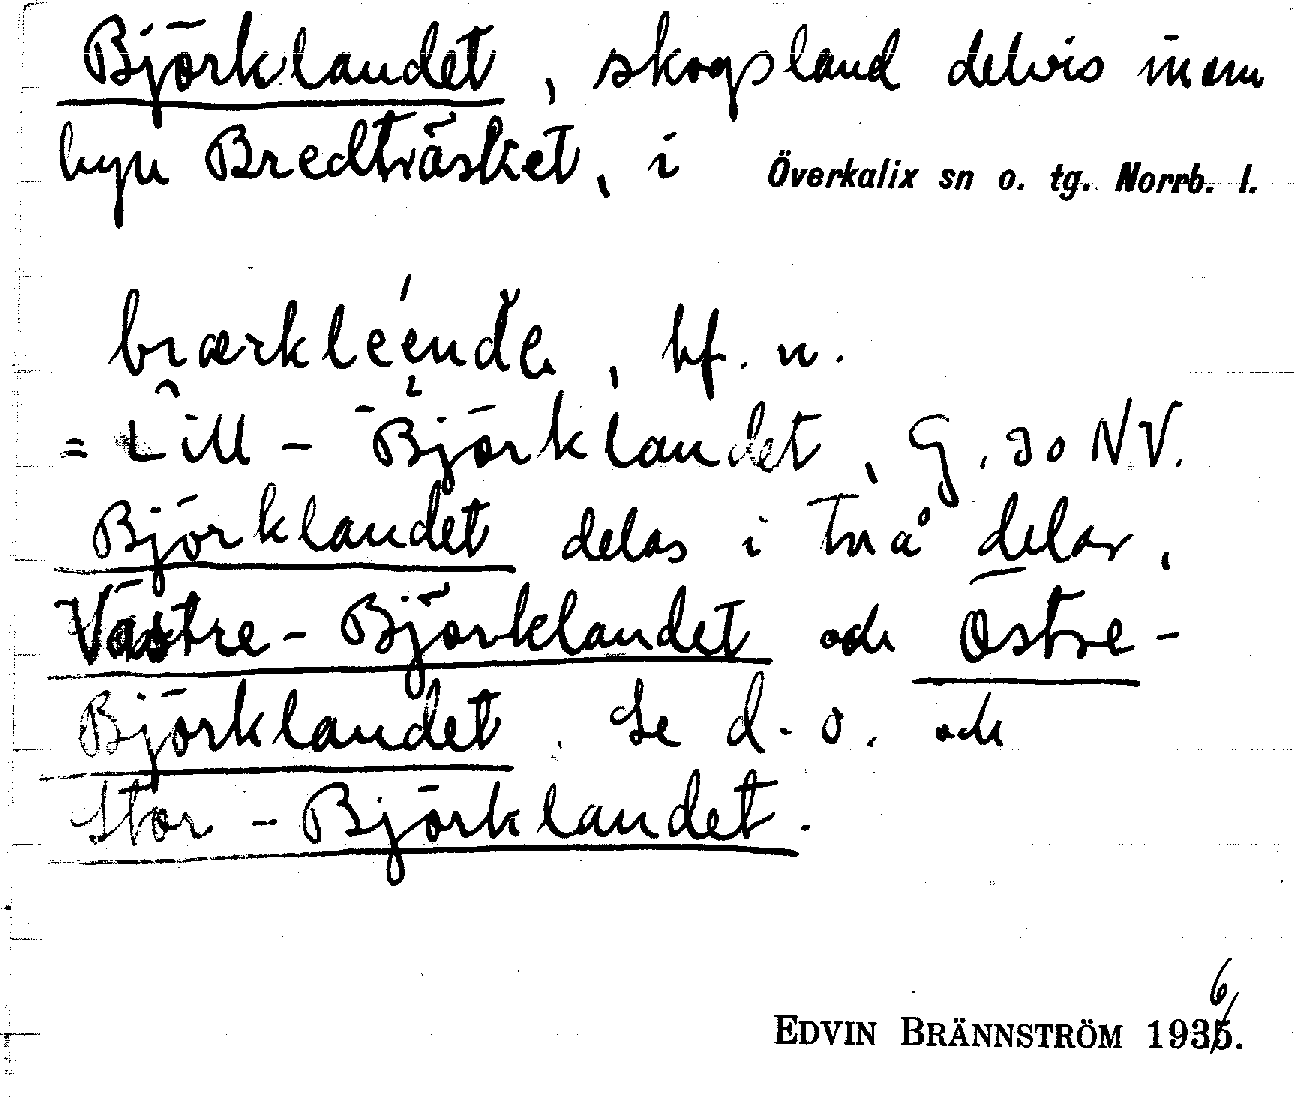 Björklandet, skogsland delvis inom
byn Bredträsket, i Överkalix sn o. tg. Norrb. l.
bf. n.
= Lill-Björklandet, G. 30 NV.
Björklandet delas i två delar,
Västre-Björklandet och Östre-
Björklandet. Se d. o. och
Stor-Björklandet.
EDVIN BRÄNNSTRÖM 1936.